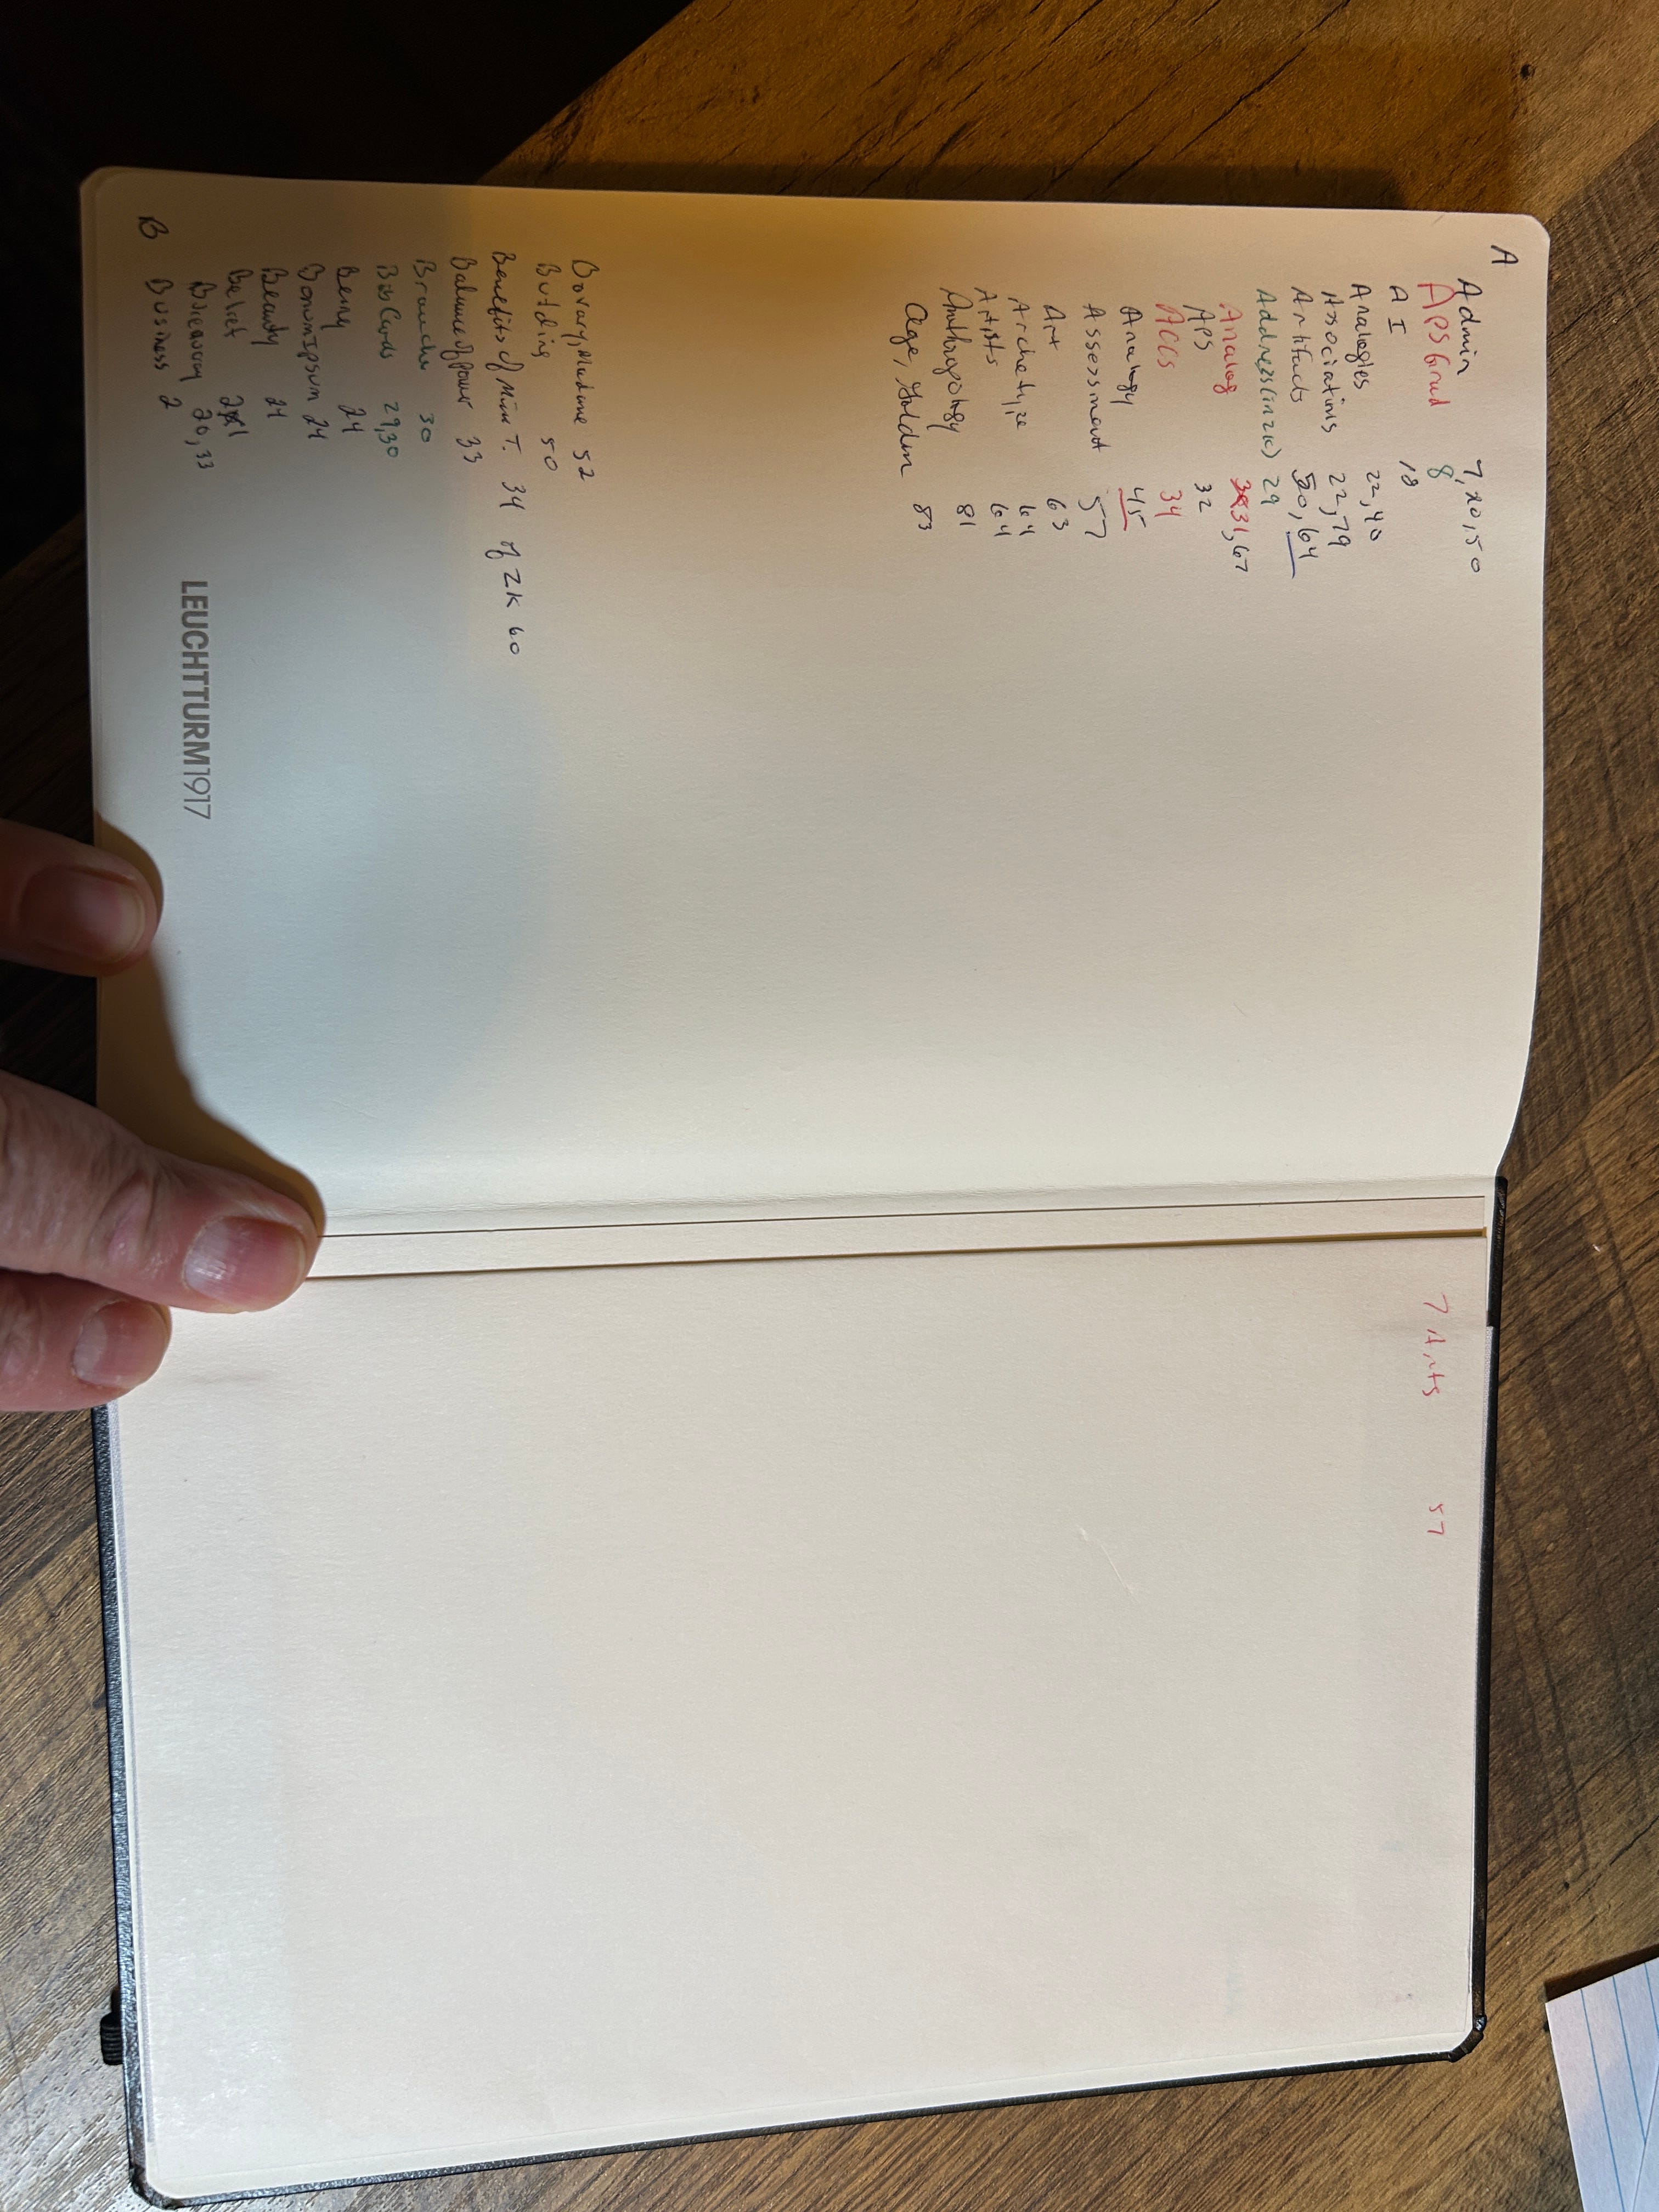 A
Admin 7, 20, 50
APS Grad 8
AI 18
Analogies 22, 40
Associations 22, 79
Antifacts 50, 64
Address (in ZK) 29
Analog 31, 67
APS 32
ACCS 34
Analogy 45
Assessment 57
Art 63
Archetype 64
Artists 64
Anthropology 81
Age, Golden 83
Bovary, Madame 52
Building 50
Benefits of Mine T. 34 of ZK 60
Balance of power 33
Branche 30
Bib Cards 29, 30
Being 24
Bonum ipsum 24
Beauty 24
20, 33
Business 2
B
LEUCHTTURM1917
7 Arts 57